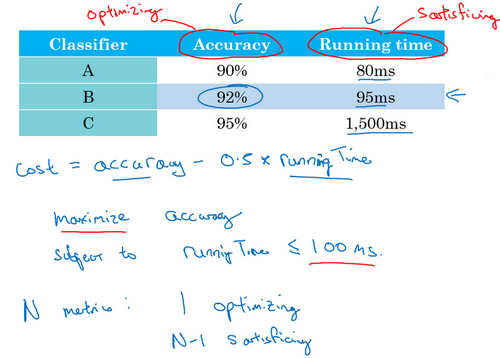 optimizing
satisficing
Classifier Accuracy Running time
A 90% 80ms
B 92% 95ms
C 95% 1,500ms
cost = accuracy - 0.5 x runningTime
maximize accuracy
subject to runningTime ≤ 100 ms.
N metrics: 1 optimizing
N-1 satisficing